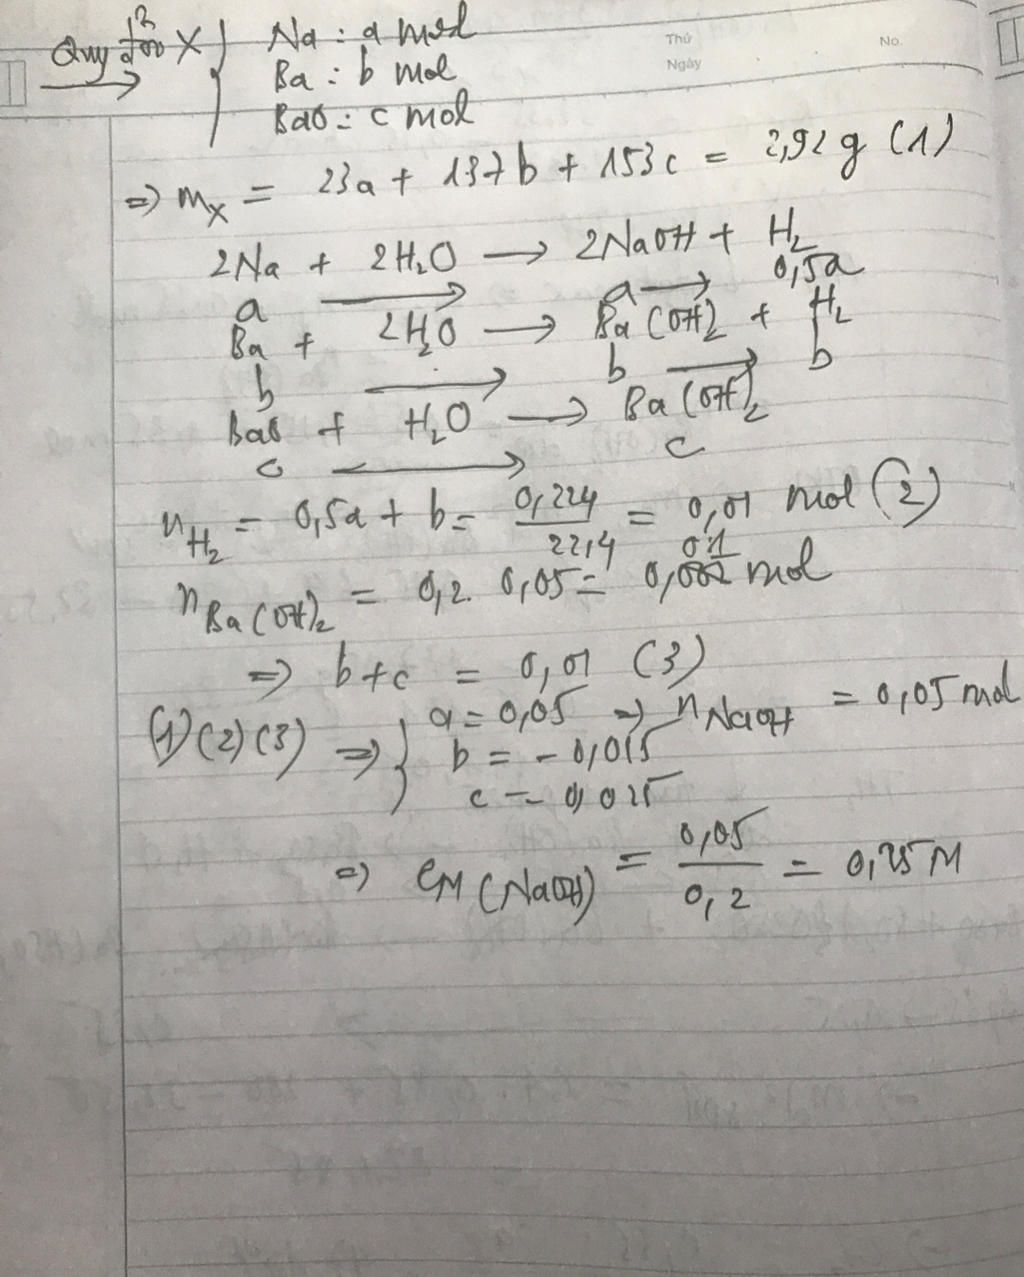 Quy đổi X } Na : a mol
Ba : b mol
BaO : c mol
Thứ
Ngày
No.
=> mX = 23a + 137b + 153c = 2,92 g (1)
2Na + 2H2O → 2NaOH + H2
a → a → 0,5a
Ba + 2H2O → Ba(OH)2 + H2
b → b → b
BaO + H2O → Ba(OH)2
c → c
nH2 = 0,5a + b = 0,224/22,4 = 0,01 mol (2)
nBa(OH)2 = 0,2. 0,05 = 0,01 mol
=> b+c = 0,01 (3)
(1)(2)(3) => { a = 0,05 => nNaOH = 0,05 mol
b = - 0,015
c = 0,025
=> CM (NaOH) = 0,05/0,2 = 0,25 M